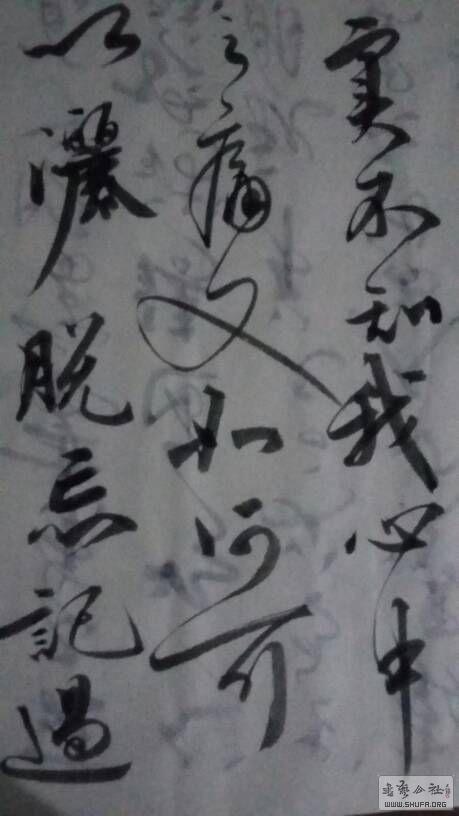 實不知我心中
之痛又如何可
以灑脫忘記過
WWW.SHUFA.ORG